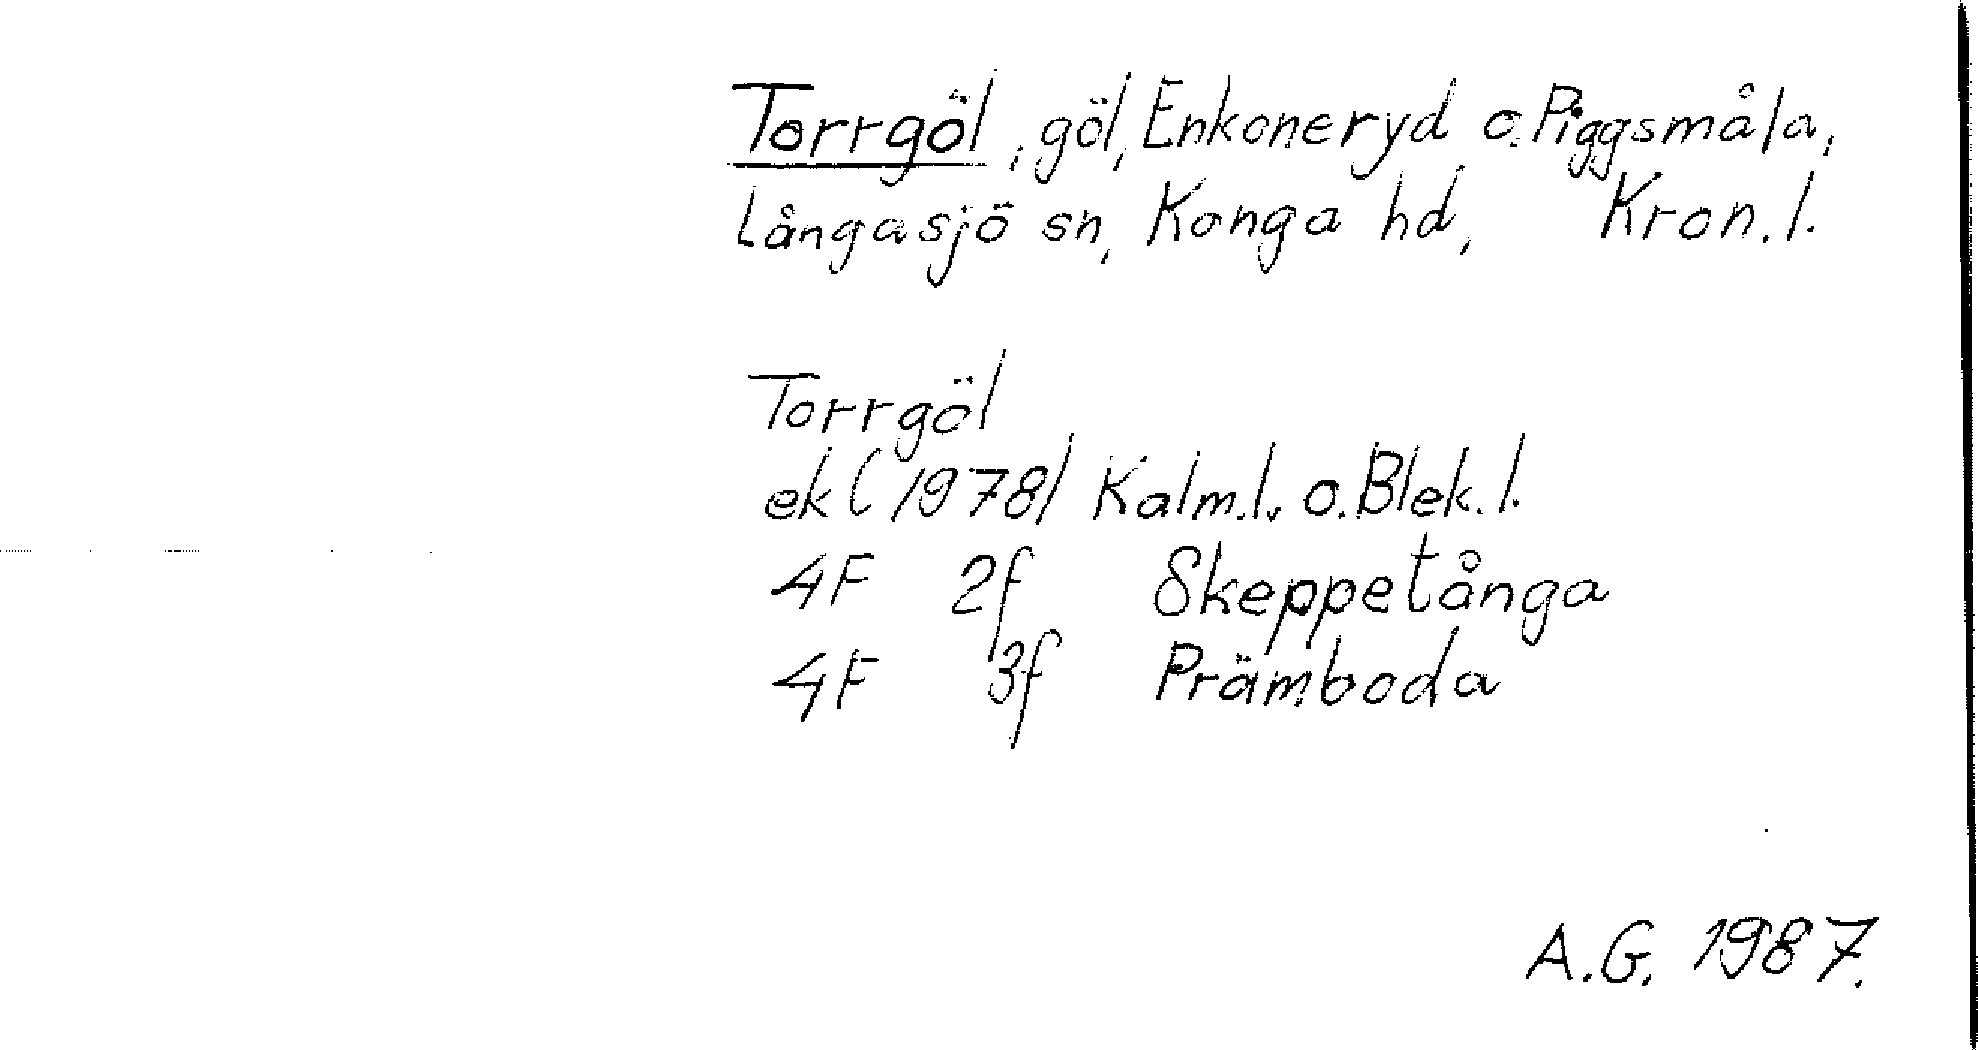 Torrgöl, göl, Enkoneryd o. Piggsmåla,
Långasjö sn, Konga hd, Kron. l.
Torrgöl
ek (1978) Kalm.l. o. Blek. l.
4F 2f Skeppetånga
4F 3f Prämboda
A.G. 1987.